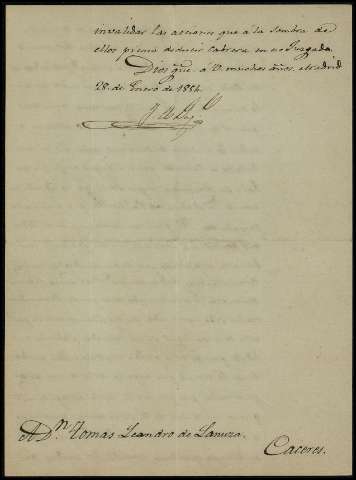 invalidar las acciones que a la sombra de
ellos piensa deducir Cabrera en ese Juzgado.
Dios gue. á V. muchos años. Madrid
28. de Enero de 1854.
A Dn. Tomas Leandro de Lanuza.
Caceres.